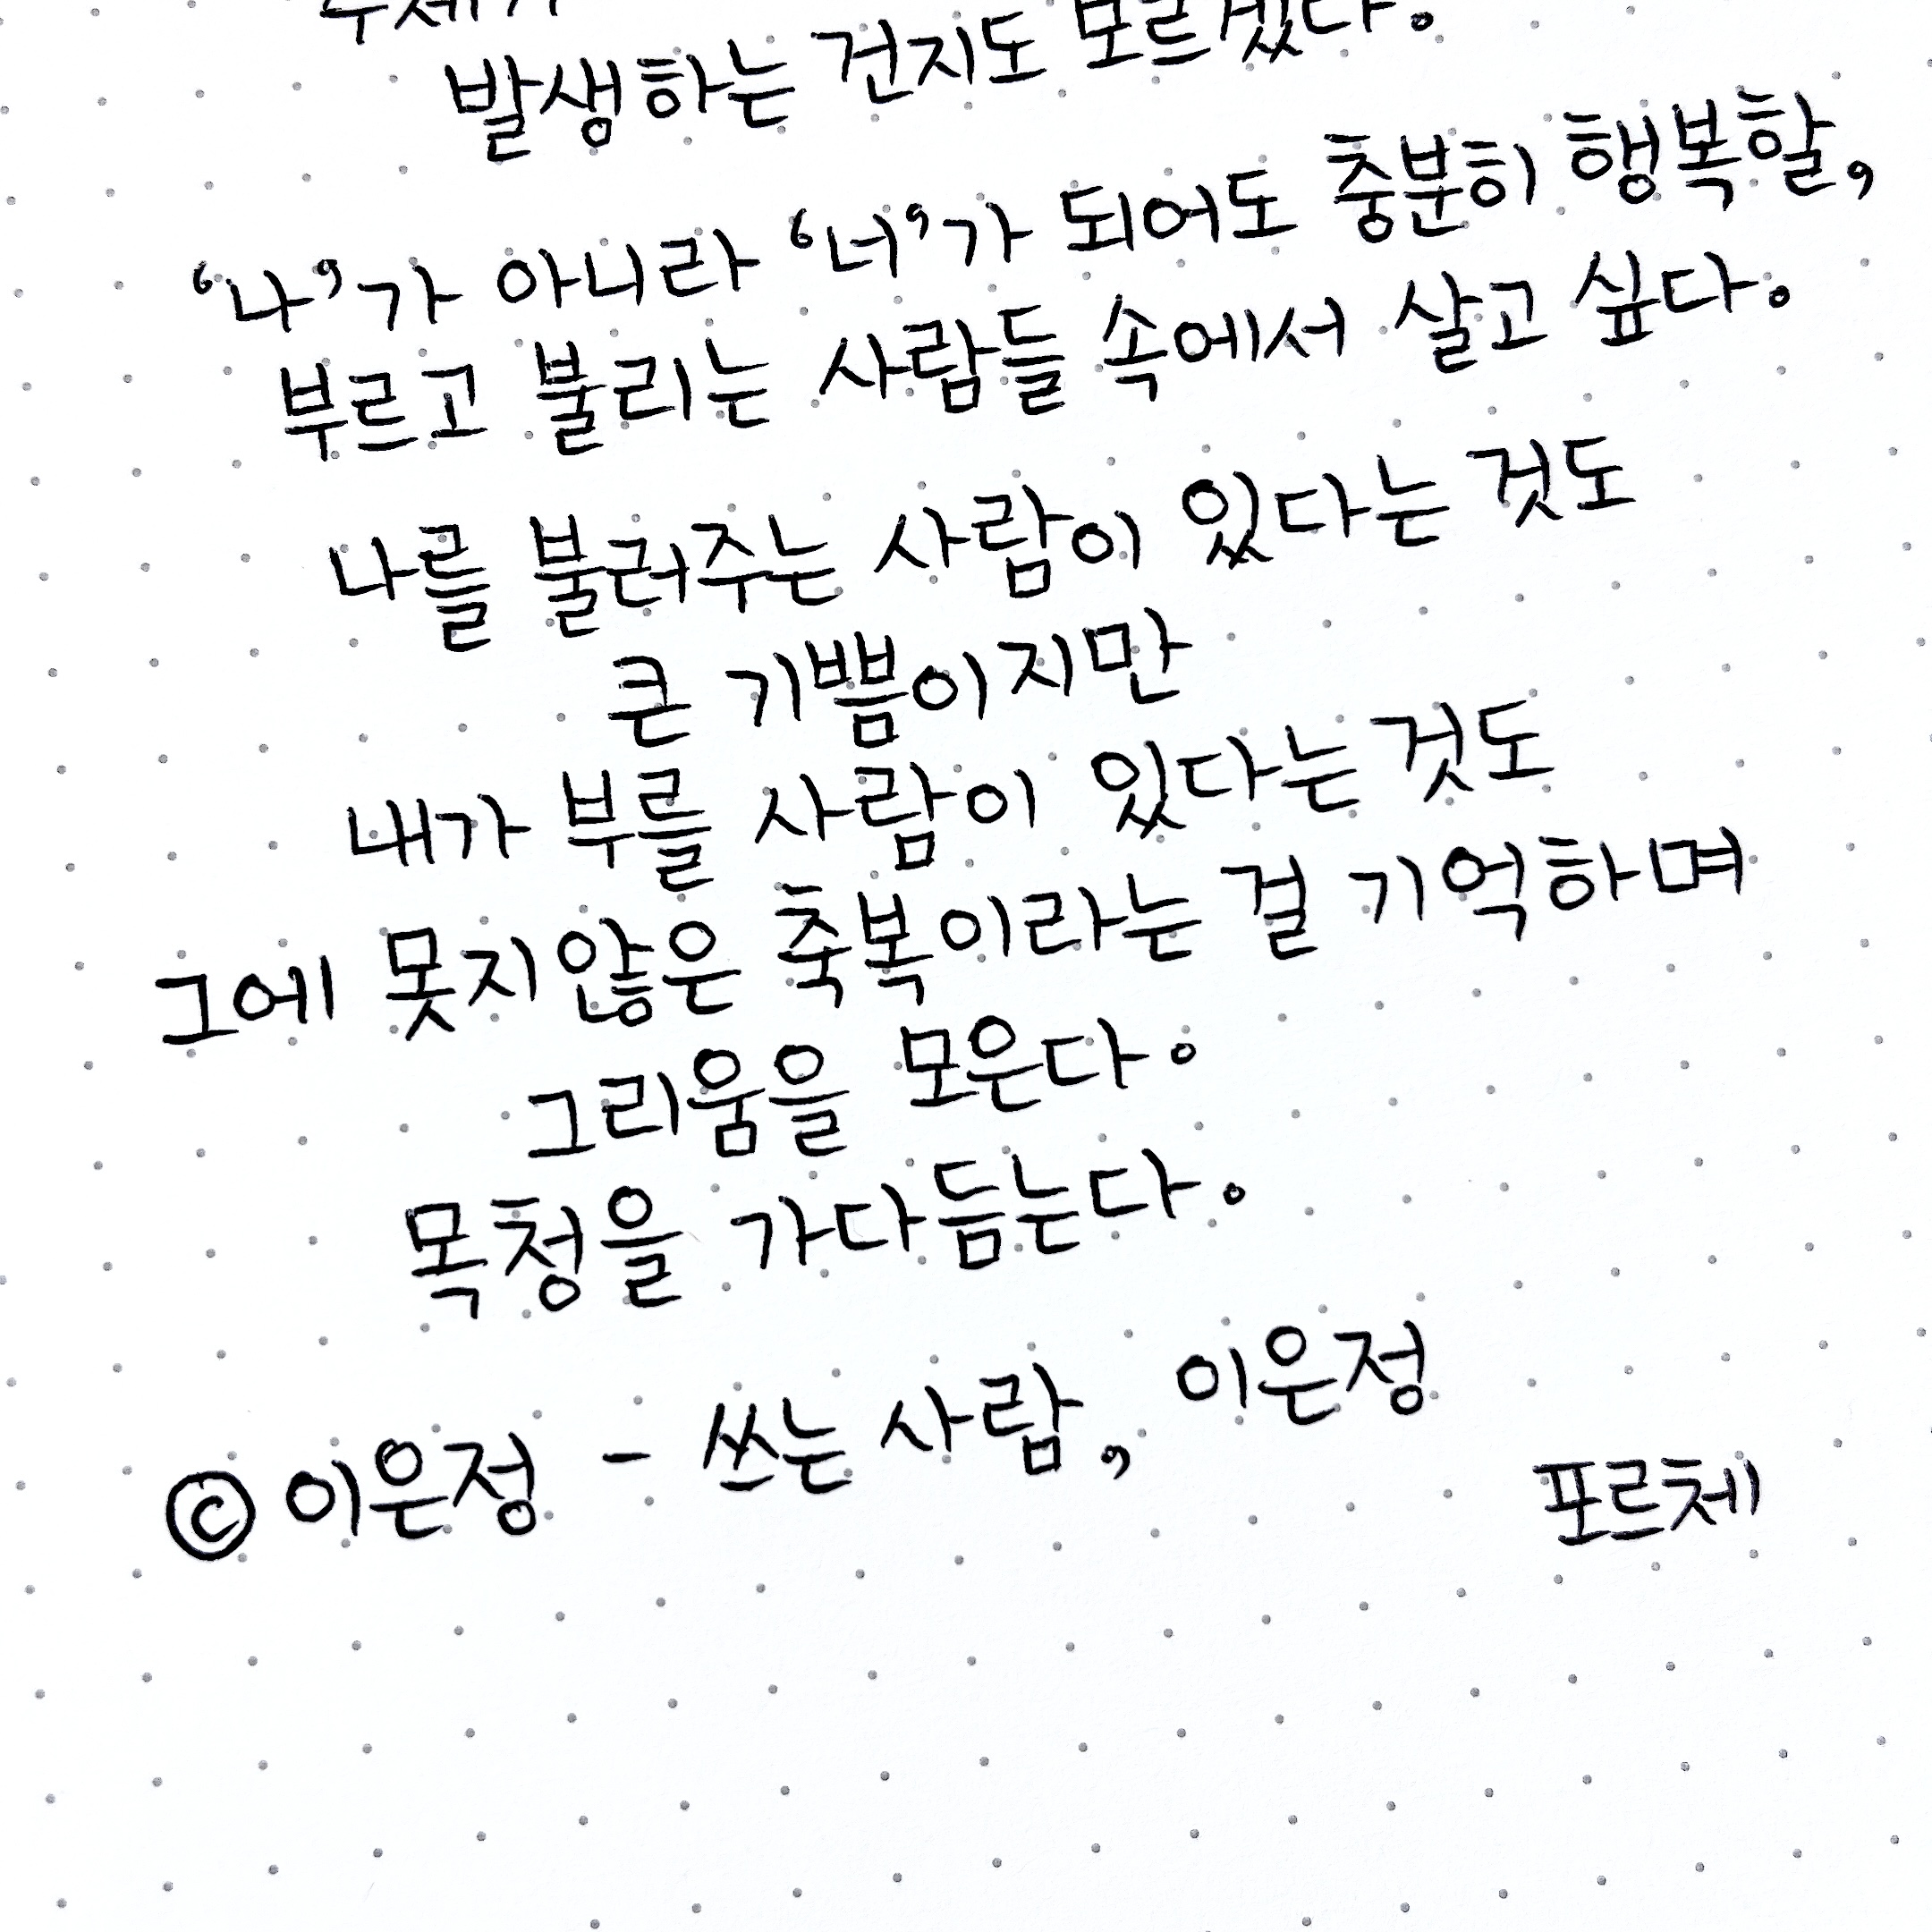 발생하는 건지도 모르겠다.
‘나’가 아니라 ‘너’가 되어도 충분히 행복할,
부르고 불리는 사람들 속에서 살고 싶다.
나를 불러주는 사람이 있다는 것도
큰 기쁨이지만
내가 부를 사람이 있다는 것도
그에 못지않은 축복이라는 걸 기억하며
그리움을 모은다.
목청을 가다듬는다.
© 이은정 - 쓰는 사람, 이은정
포르체